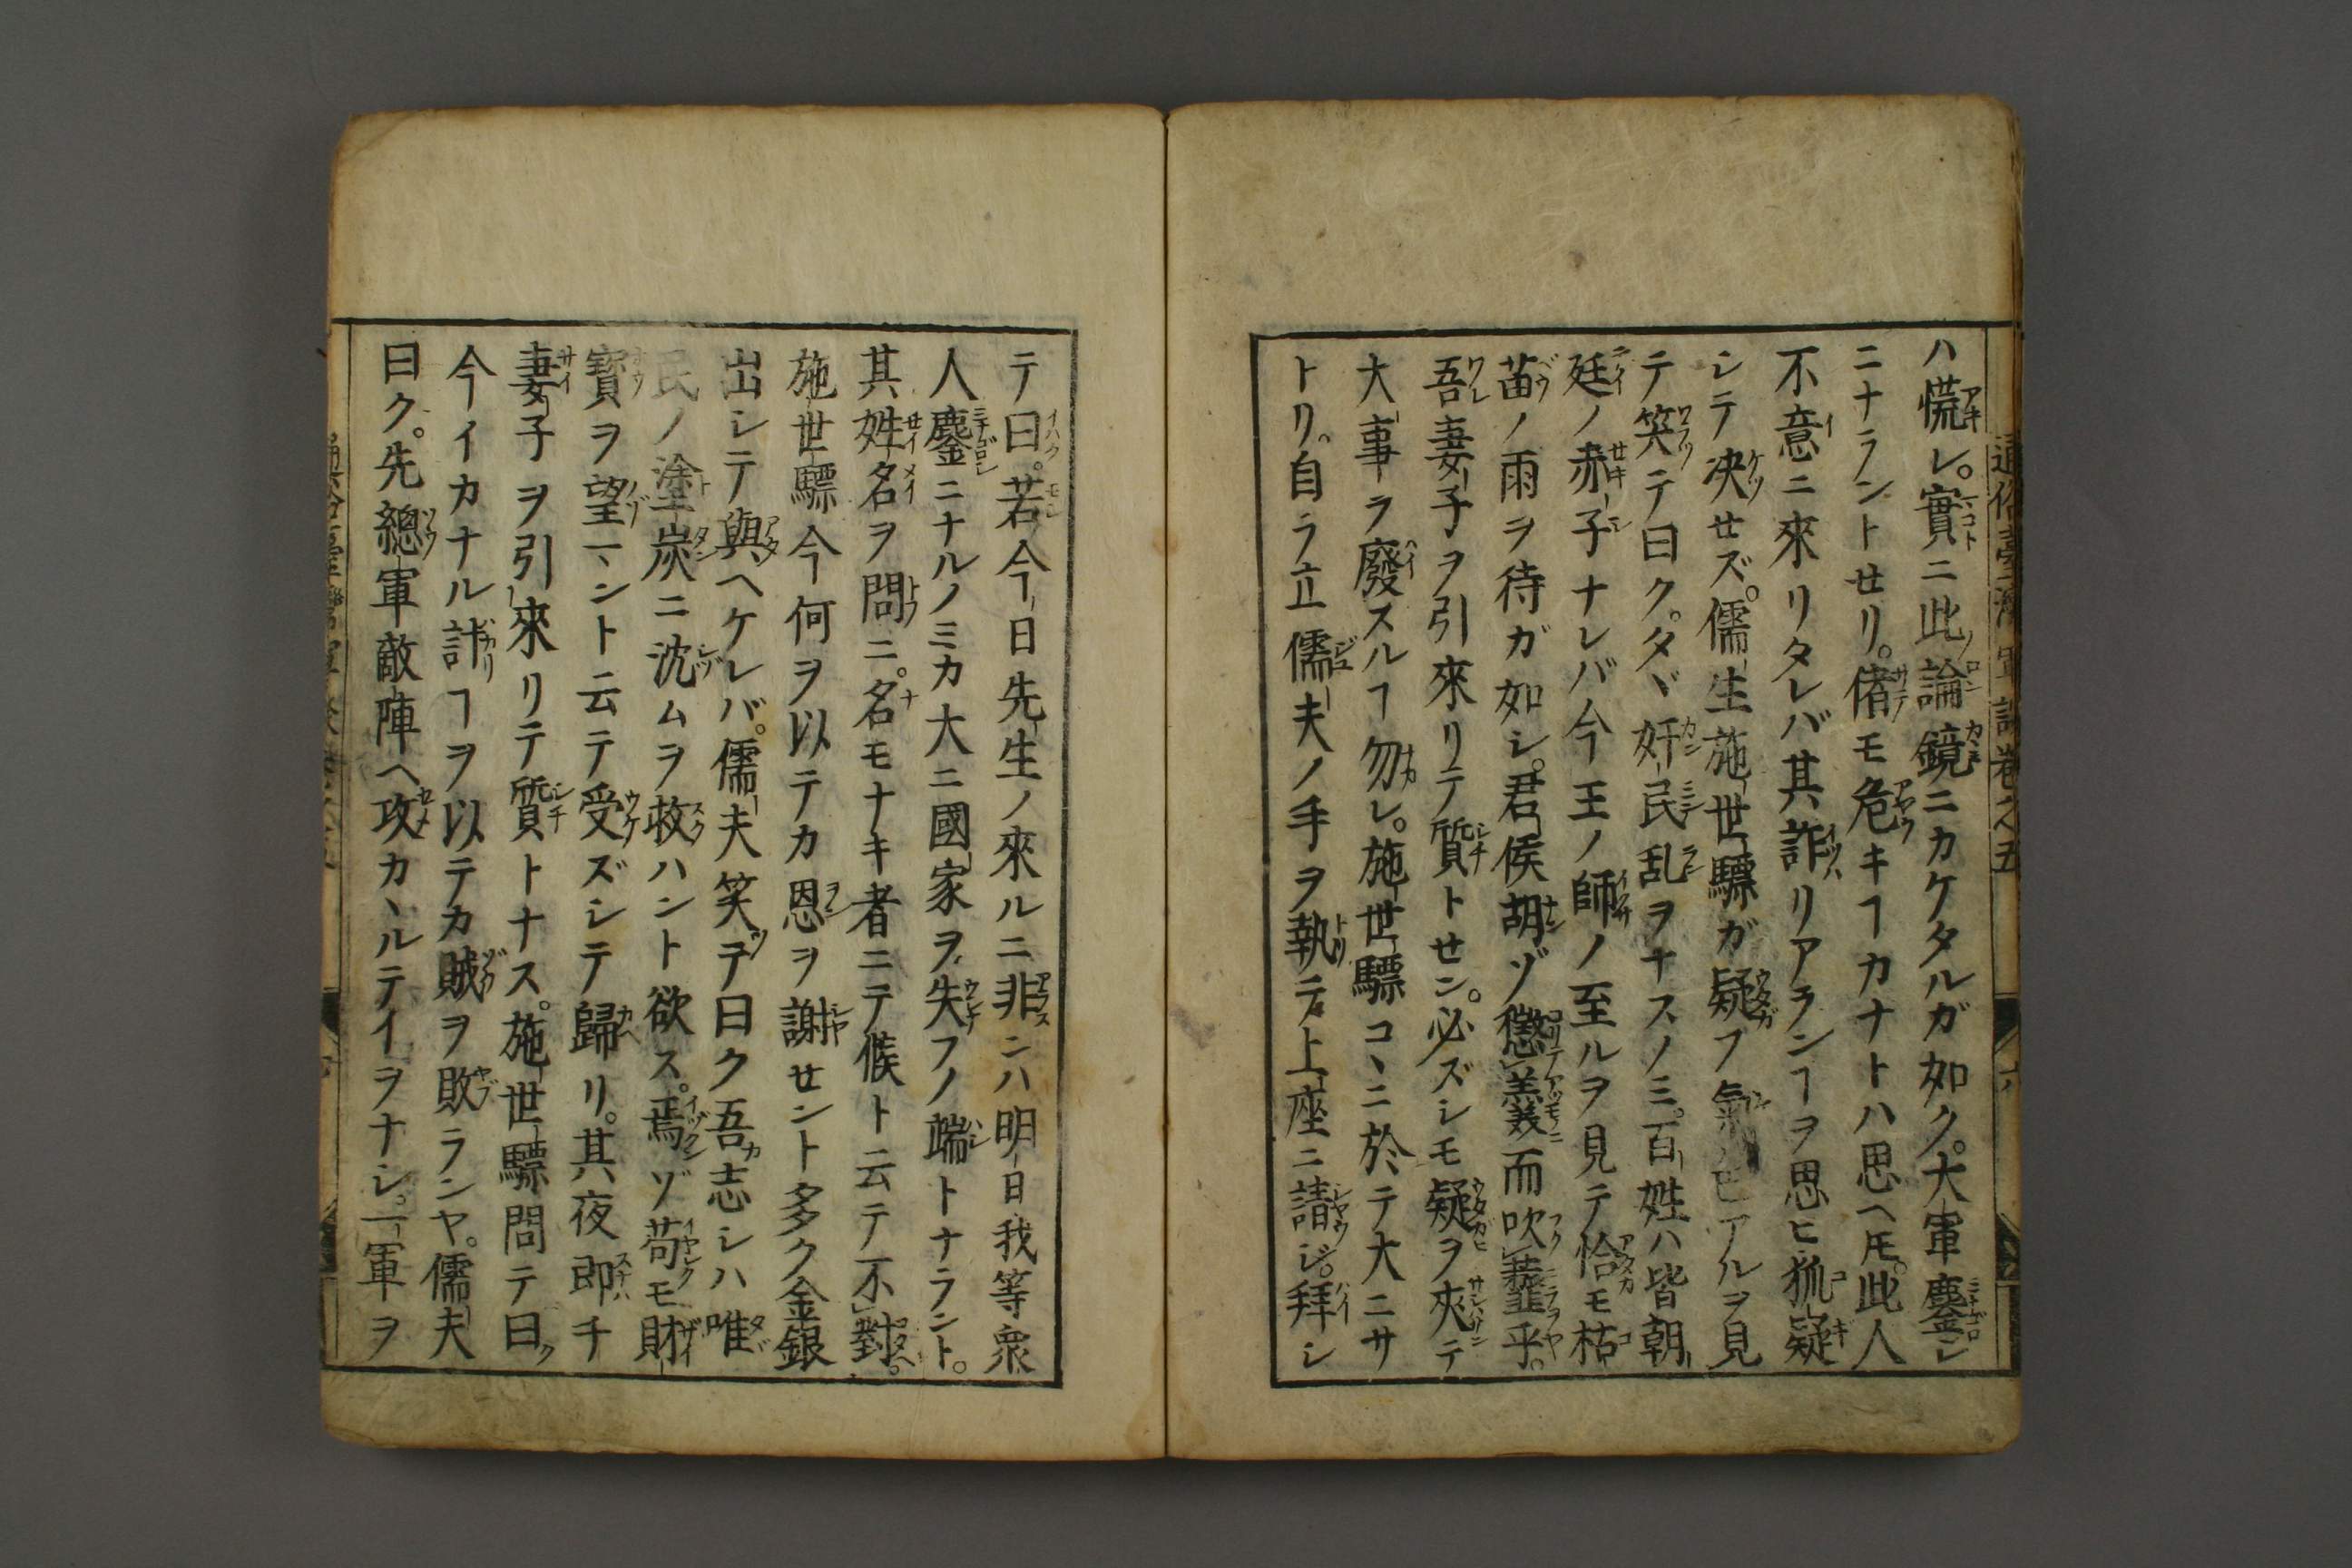 通俗臺灣軍談卷之五
六
ハ慌レ。實ニ此論鏡ニカケタルガ如ク。大軍鏖シ
ニナラントセリ。偖モ危キヿカナトハ思ヘㇳモ。此人
不意ニ來リタレバ其詐リアランヿヲ思ヒ狐疑
シテ決せズ。儒生施世驃ガ疑フ氣色アルヲ見
テ笑テ曰ク。タヾ奸民乱ヲナスノミ。百姓ハ皆朝
廷ノ赤子ナレバ今王ノ師ノ至ルヲ見テ恰モ枯
苗ノ雨ヲ待ガ如シ。君侯胡ゾ懲羹而吹韲乎。
吾妻子ヲ引來リテ質トせン。必ズシモ疑ヲ夾テ
大事ラ廢スルヿ勿レ。施世驃コヽニ於テ大ニサ
トリ。自ラ立儒夫ノ手ヲ執テ上座ニ請ジ。拜シ
テ曰。若今日先生ノ來ルニ非ンハ明日我等衆
人鏖ニナルノミカ大ニ國家ヲ失フノ端トナラント。
其姓名ヲ問ニ。名モナキ者ニテ候ト云テ不對。
施世驃今何ヲ以テカ恩ヲ謝せント多ク金銀
出シテ與ヘケレバ。儒夫笑テ曰ク吾志シハ唯
民ノ塗炭ニ沈ムヲ救ハント欲ス。焉ゾ苟モ財
寶ヲ望マント云テ受ズシテ歸リ。其夜即チ
妻子ヲ引來リテ質トナス。施世驃問テ曰
今イカナル計ヿヲ以テカ賊ヲ敗ランヤ。儒夫
曰ク。先總軍敵陣ヘ攻カヽルテイヲナシ。一軍ヲ